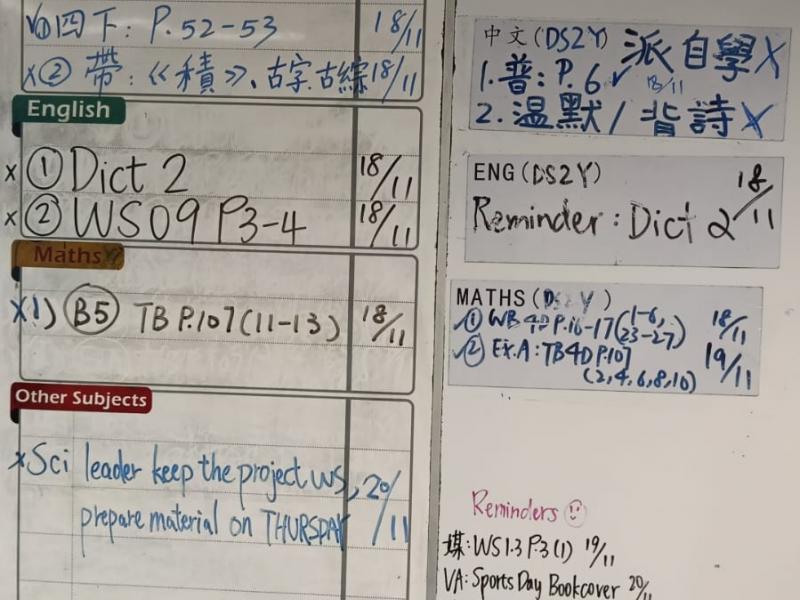 ✓① 四下: P.52-53 18/11
x② 帶:《積》、古字.古綜 18/11
English
x ① Dict 2 18/11
x ② WS09 P3-4 18/11
Maths
x1) B5 TB P.107(11-13) 18/11
Other Subjects
xSci leader keep the project WS, 20/11
prepare material on THURSDAY
中文(DS2Y) 派自學x
1.普:P.6✓ 18/11
2.温默/背詩x
ENG(DS2Y) 18/11
Reminder: Dict 2
MATHS(DS2Y)
✓① WB 4D P.16-17(1-6, 18/11
23-27)
✓② Ex.A: TB4D P.107 19/11
(2,4,6,8,10)
Reminders
媒: WS1.3 P.3(1) 19/11
VA: Sports Day Bookcover 20/11